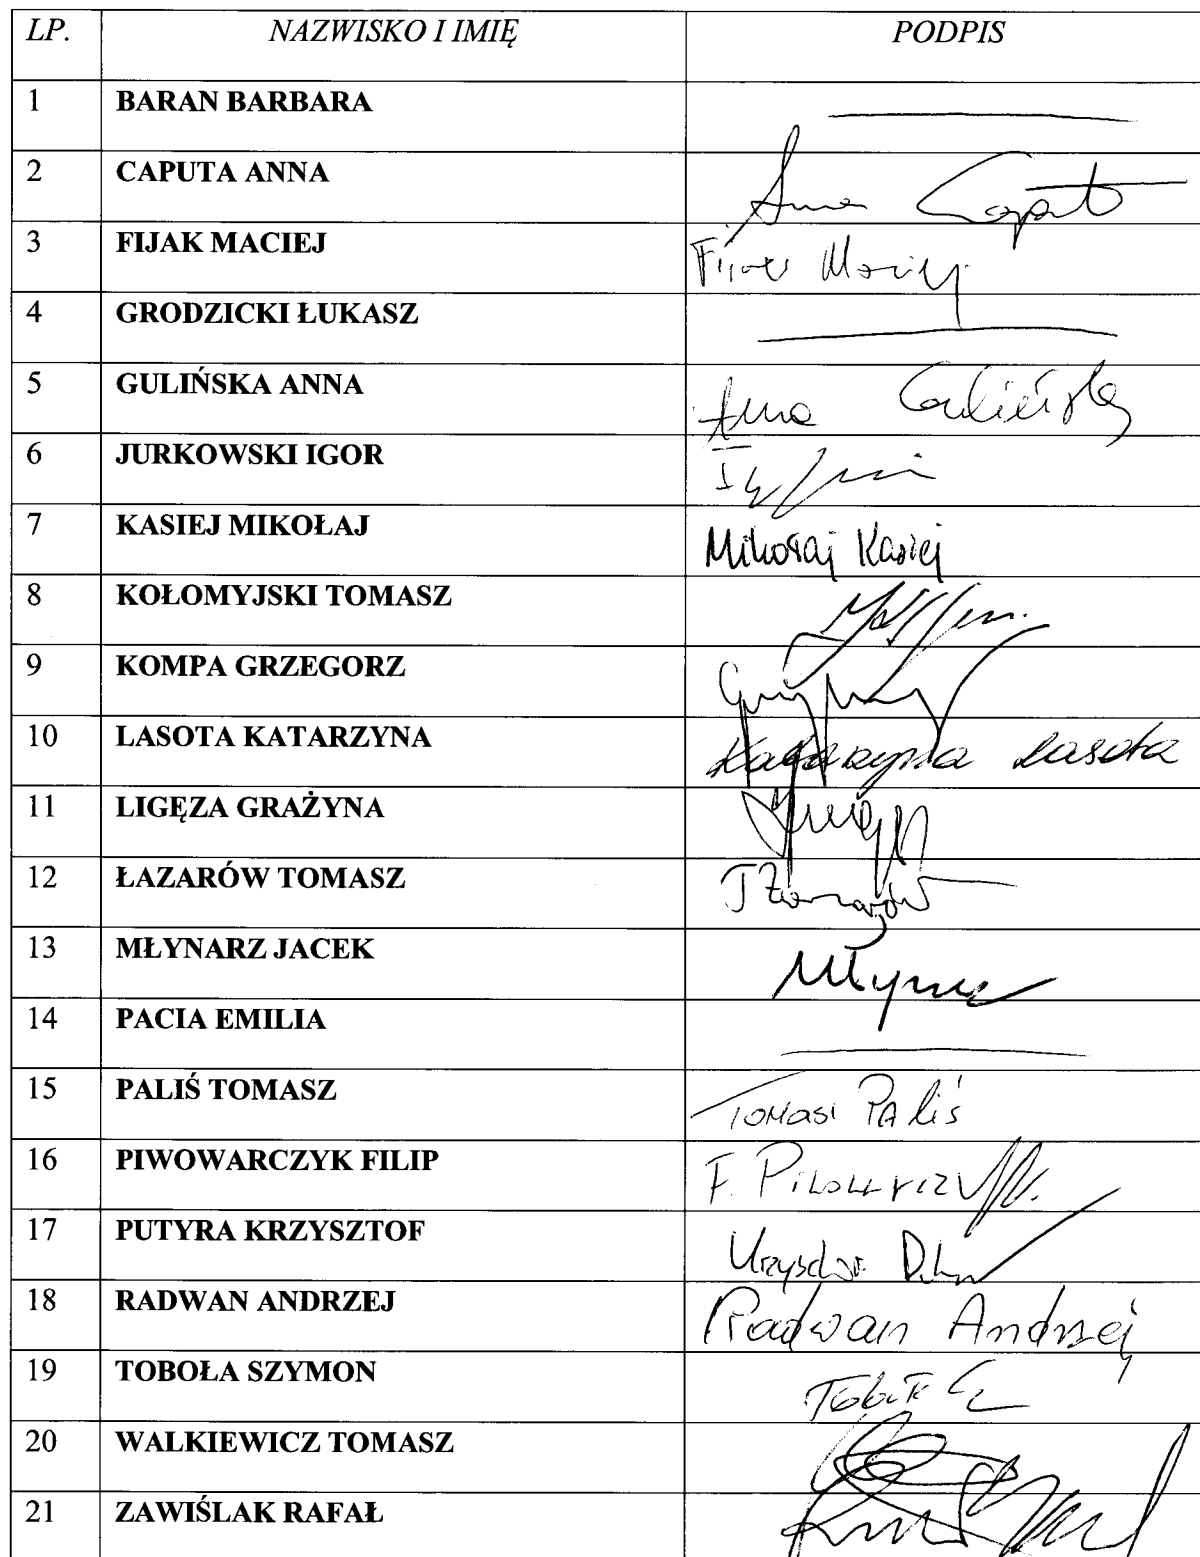 LP. NAZWISKO I IMIĘ PODPIS
1 BARAN BARBARA
2 CAPUTA ANNA Anna Caputa
3 FIJAK MACIEJ Fijak Maciej
4 GRODZICKI ŁUKASZ
5 GULIŃSKA ANNA Anna Gulińska
6 JURKOWSKI IGOR
7 KASIEJ MIKOŁAJ Mikołaj Kasiej
8 KOŁOMYJSKI TOMASZ
9 KOMPA GRZEGORZ
10 LASOTA KATARZYNA Katarzyna Lasota
11 LIGĘZA GRAŻYNA
12 ŁAZARÓW TOMASZ
13 MŁYNARZ JACEK
14 PACIA EMILIA
15 PALIŚ TOMASZ Tomasz Paliś
16 PIWOWARCZYK FILIP
17 PUTYRA KRZYSZTOF
18 RADWAN ANDRZEJ Radwan Andrzej
19 TOBOŁA SZYMON
20 WALKIEWICZ TOMASZ
21 ZAWIŚLAK RAFAŁ